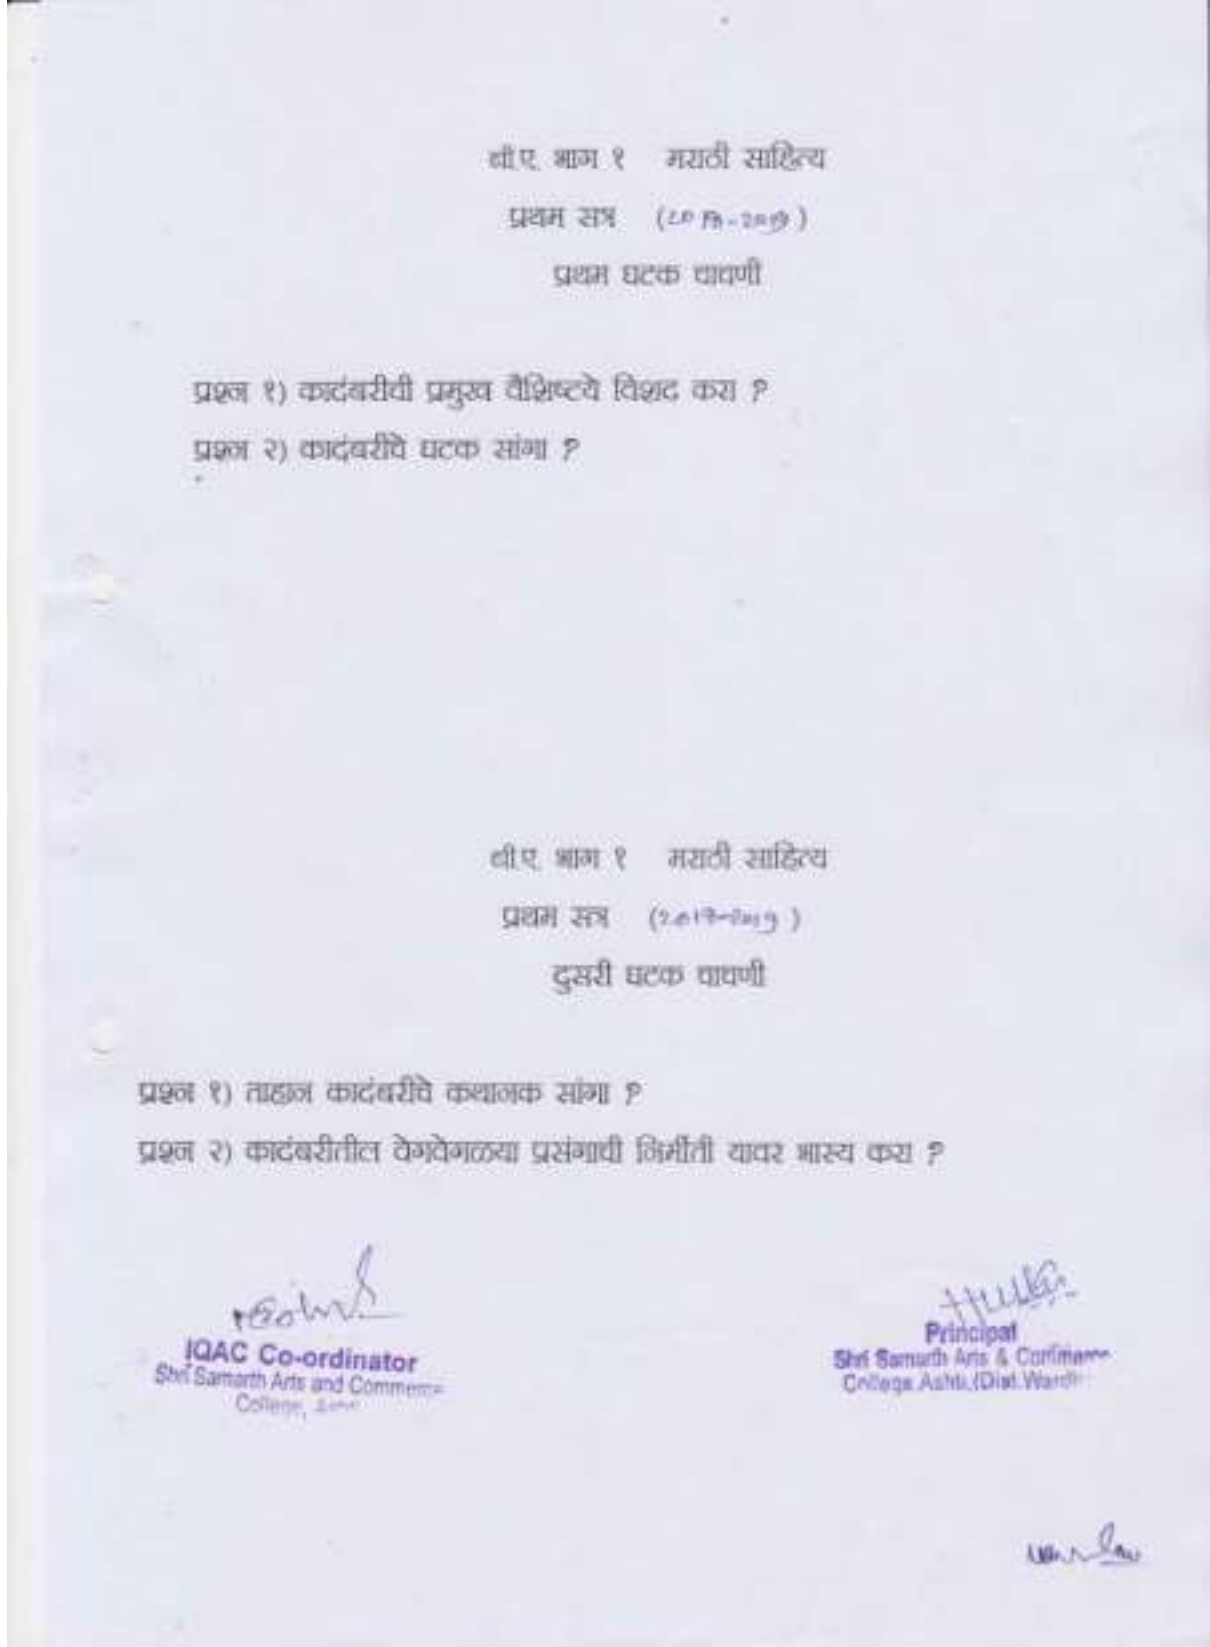 बी.ए. भाग १ मराठी साहित्य
प्रथम सत्र
प्रथम घटक चाचणी
प्रश्न १) कादंबरीची प्रमुख वैशिष्टये विशद करा ?
प्रश्न २) कादंबरीचे घटक सांगा ?
बी.ए. भाग १ मराठी साहित्य
प्रथम सत्र
दुसरी घटक चाचणी
प्रश्न १) ताहान कादंबरीचे कथानक सांगा ?
प्रश्न २) कादंबरीतील वेगवेगळया प्रसंगाची निर्मीती यावर भास्य करा ?
IQAC Co-ordinator
Shri Samarth Arts and Commerce
College,
Principal
Shri Samarth Arts & Commerce
College Ashti,(Dist.Wardh